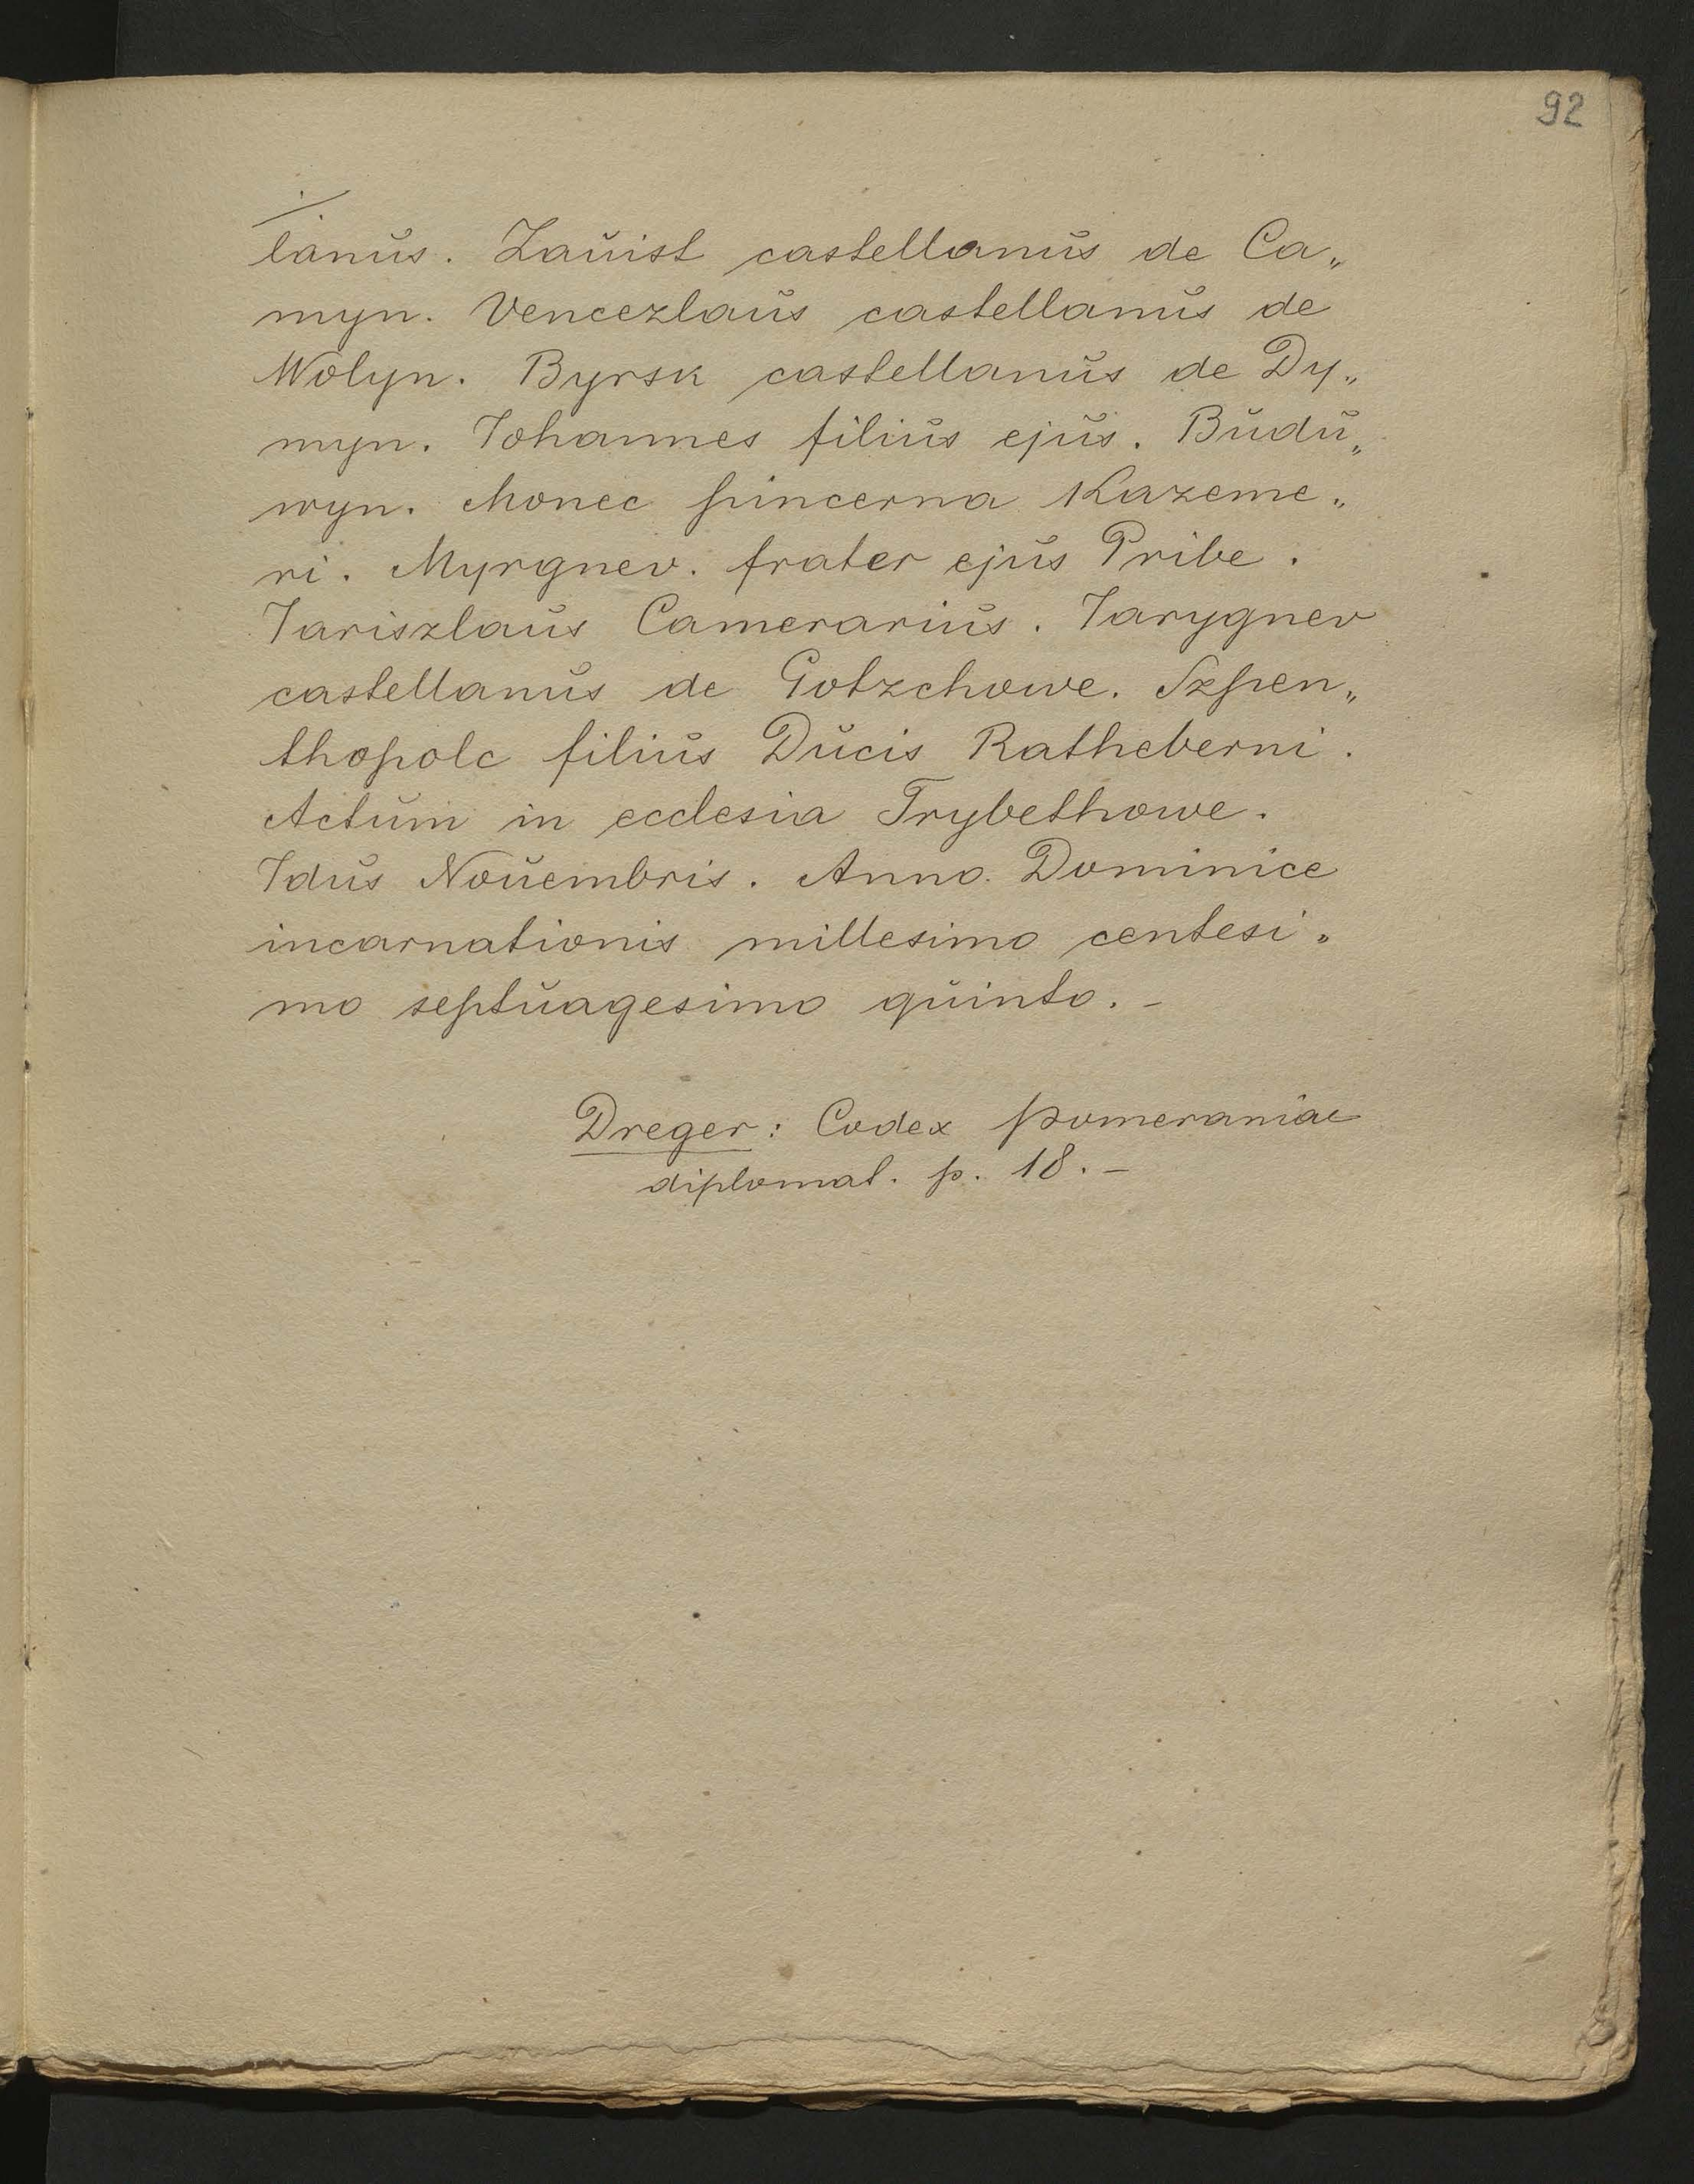 92
./.
lanus. Zauist castellanus de Ca„
myn. Vencezlaus castellanus de
Wolyn. Byrsk castellanus de Dy„
myn. Iohannes filius ejus. Budu„
wyn. Monec pincerna Kazeme„
ri. Myrgnev. frater ejus Pribe.
Iariszlaus Camerarius. Iarygnev
castellanus de Gotzchowe. Szpen„
thopolc filius Ducis Ratheberni.
Actum in ecclesia Trybethowe.
Idus Nouembris. Anno Dominice
incarnationis millesimo centesi„
mo septuagesimo quinto. –
Dreger: Codex Pomeraniae
diplomat. p. 18. –